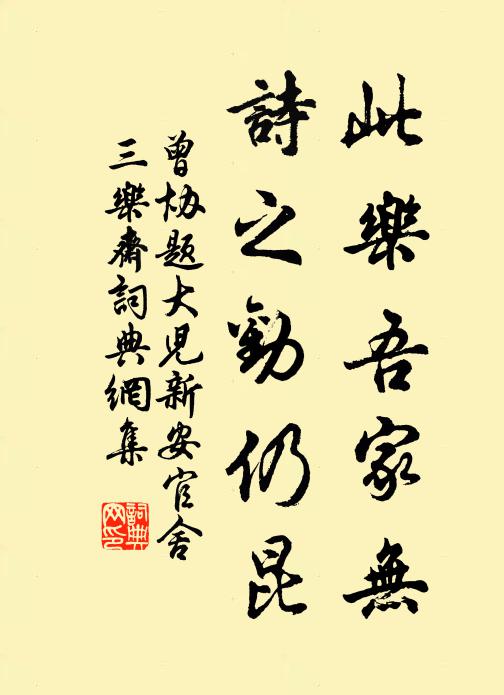 此樂吾家無
詩之勤仍昆
曾協題大兒新安官舍
三樂齋詞典網集
詞典網印